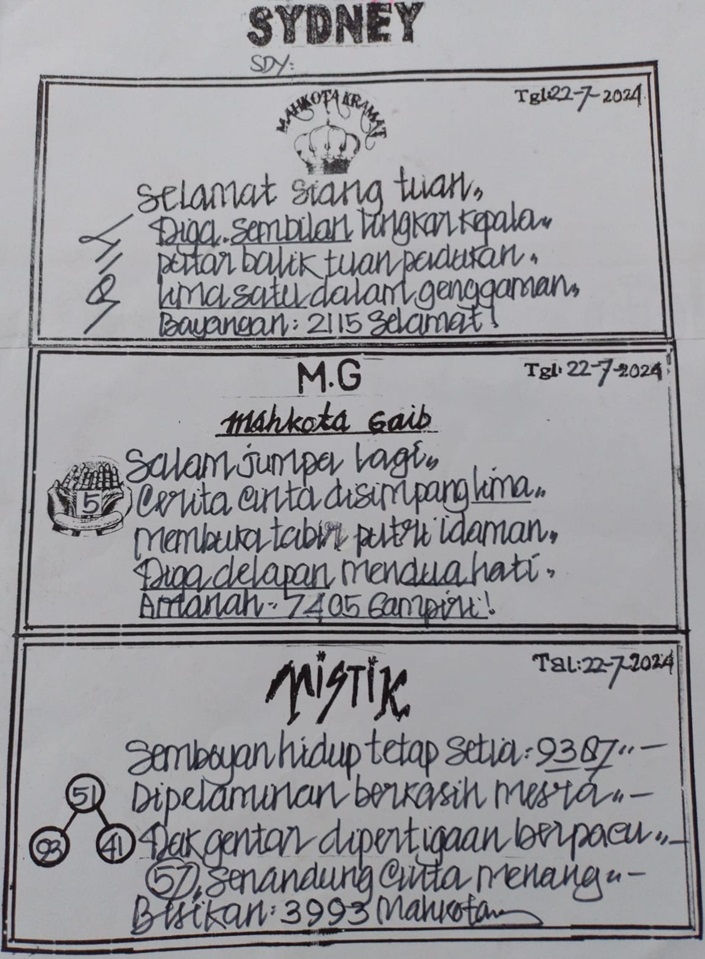 SYDNEY
SDY:
Tgl:22-7-2024
MAHKOTA KRAMAT
Selamat siang tuan,,
Diga. sembilan lingkar kepala,,
putar balik tuan padukan,
lima satu dalam genggaman,
Bayangan: 2115 Selamat!
M.G
Tgl: 22-7-2024
Mahkota Gaib
Salam jumpa lagi,,
5
Cerita cinta disimpang lima,,
membuka tabir putri idaman,
Diga delapan mendua hati,
Amanah:- 7405 Gampiri!
MiSTiK
Tgl:22-7-2024
Semboyan hidup tetap setia: 9387,,-
51
Dipelaminan berkasih mesra,,-
93 41
Dak gentar dipertigaan berpacu,,-
57, Senandung cinta menang,,-
Bisikan: 3993 Mahkota